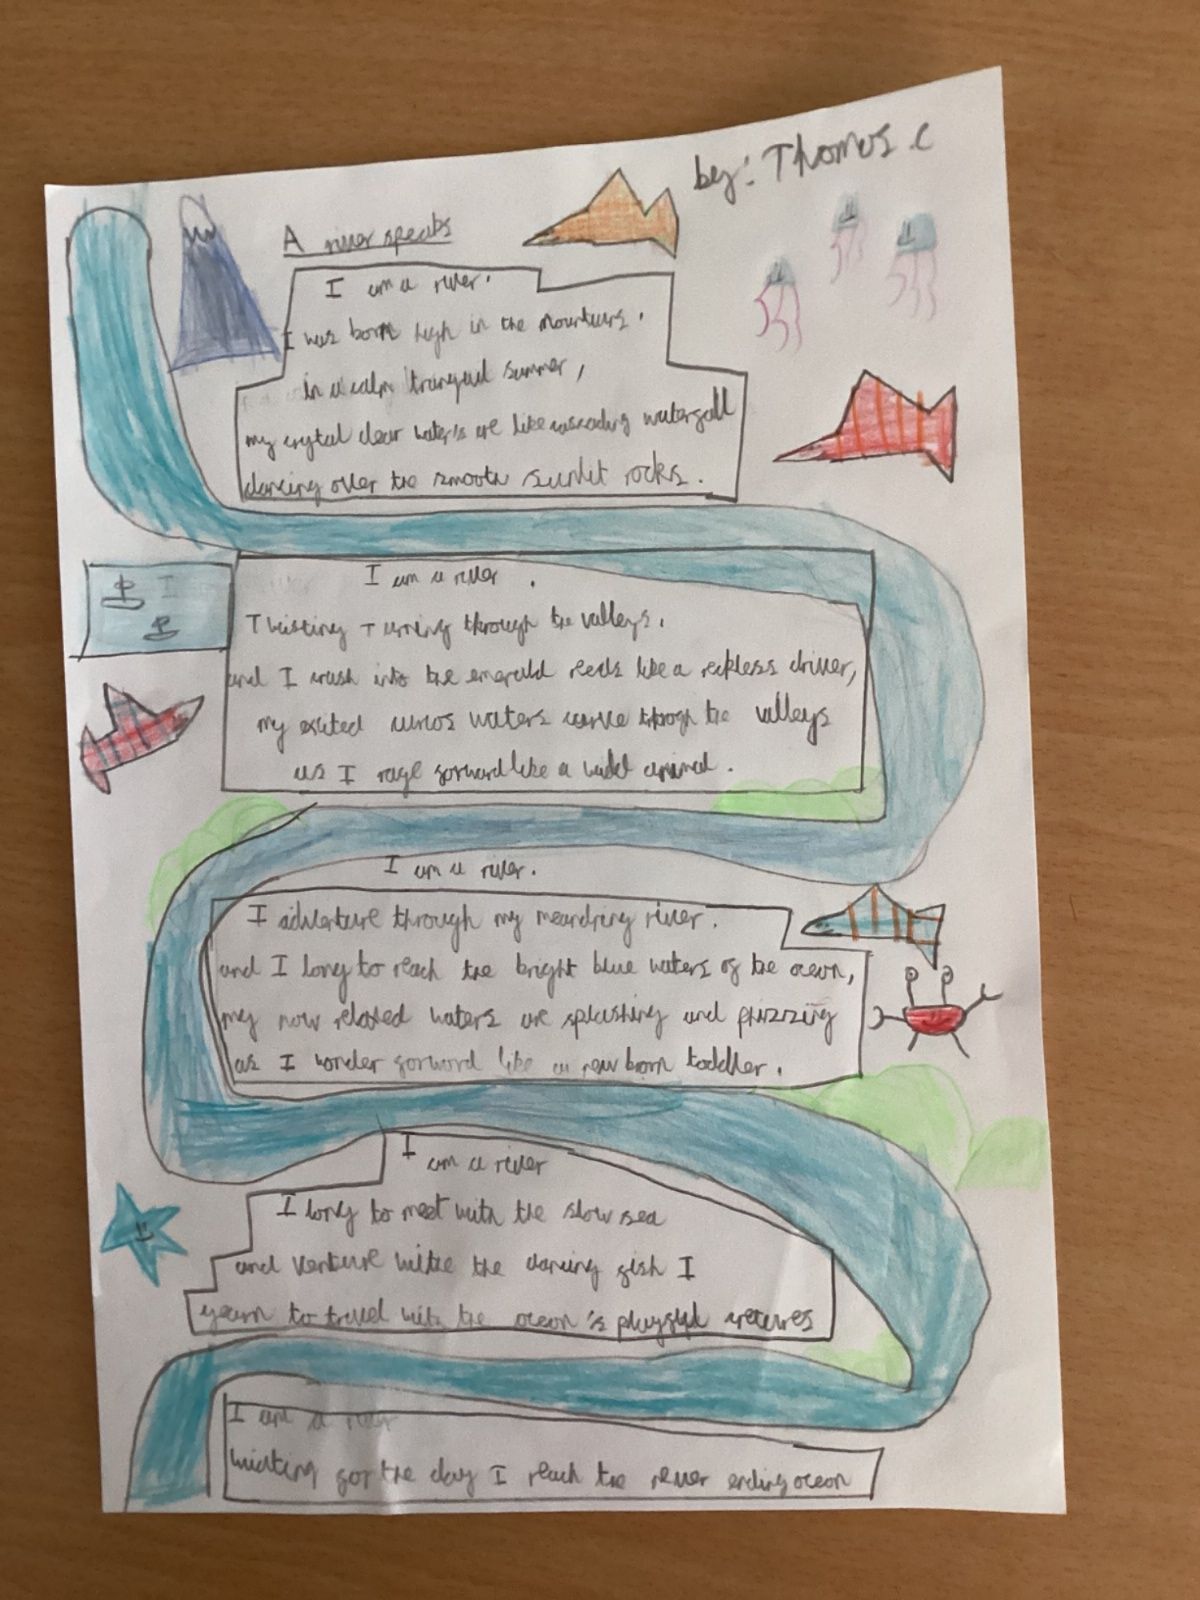 by: Thomas.c
A river speaks
I am a river.
I was born high in the mountains.
in a calm tranquil summer,
my crytal clear waters are like cascading watergall
dancing over the smooth sunlit rocks.
I am a river.
Twisting Turning through the valleys.
and I crash into the emerald reeds like a reckless driver,
my exited waters carve throogh the valleys
as I rage forward like a animal.
I am a river.
I adventure through my meandring river.
and I long to reach the bright blue waters of the ocean,
my now relaxed waters are splashing and phizzing
as I wonder forword like a new born toddler.
I am a river
I long to meet with the slow sea
and venture withe the dancing fish I
yearn to travel with the ocean's playful
I am a river
waiting for the day I reach the never ending ocean